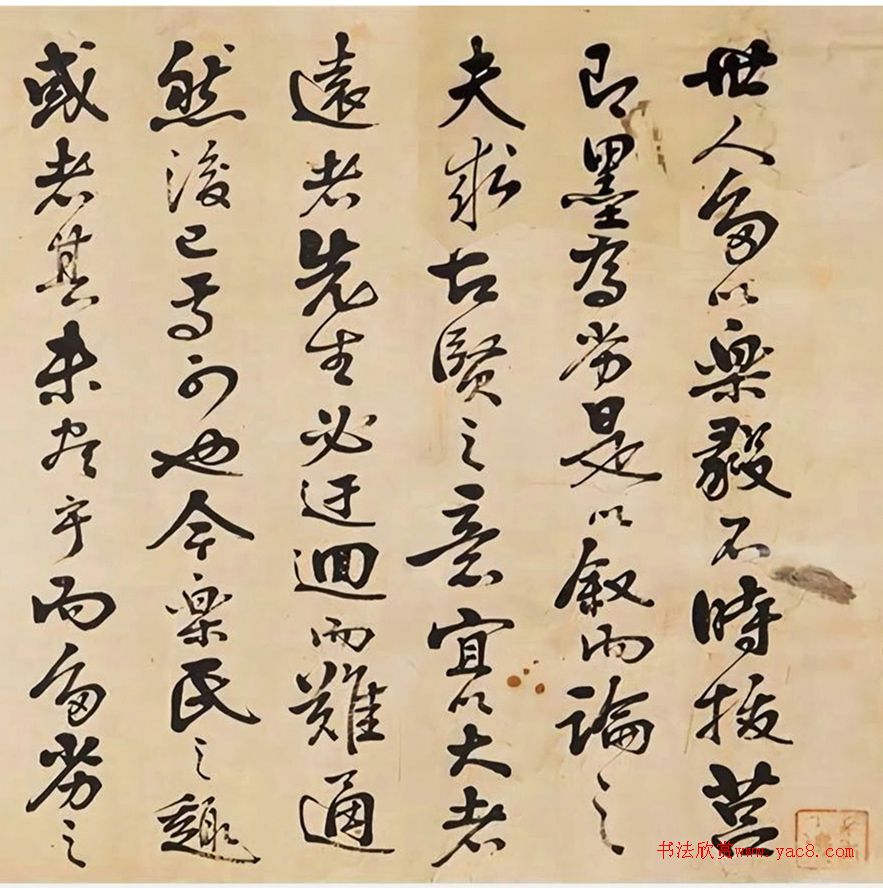 世人多以樂毅不時拔莒
即墨為劣是以叙而論之
夫求古賢之意宜以大者
遠者先生必迂迴而難通
然後已焉可也今樂氏之趣
或者其未盡乎而多劣之
书法欣赏www.yac8.com